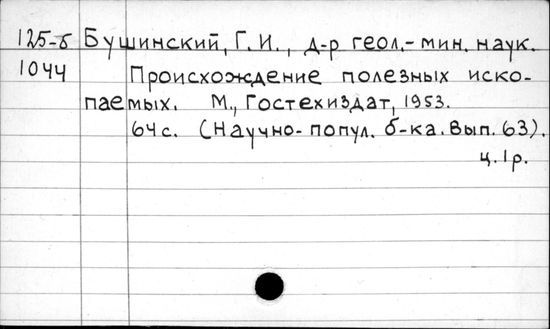 125-б Бушинский, Г. И., д-р геол.-мин. наук.
1044 Происхождение полезных иско-
паемых. М., Гостехиздат, 1953.
64 с. (Научно-попул. б-ка. Вып. 63).
ц. 1 р.